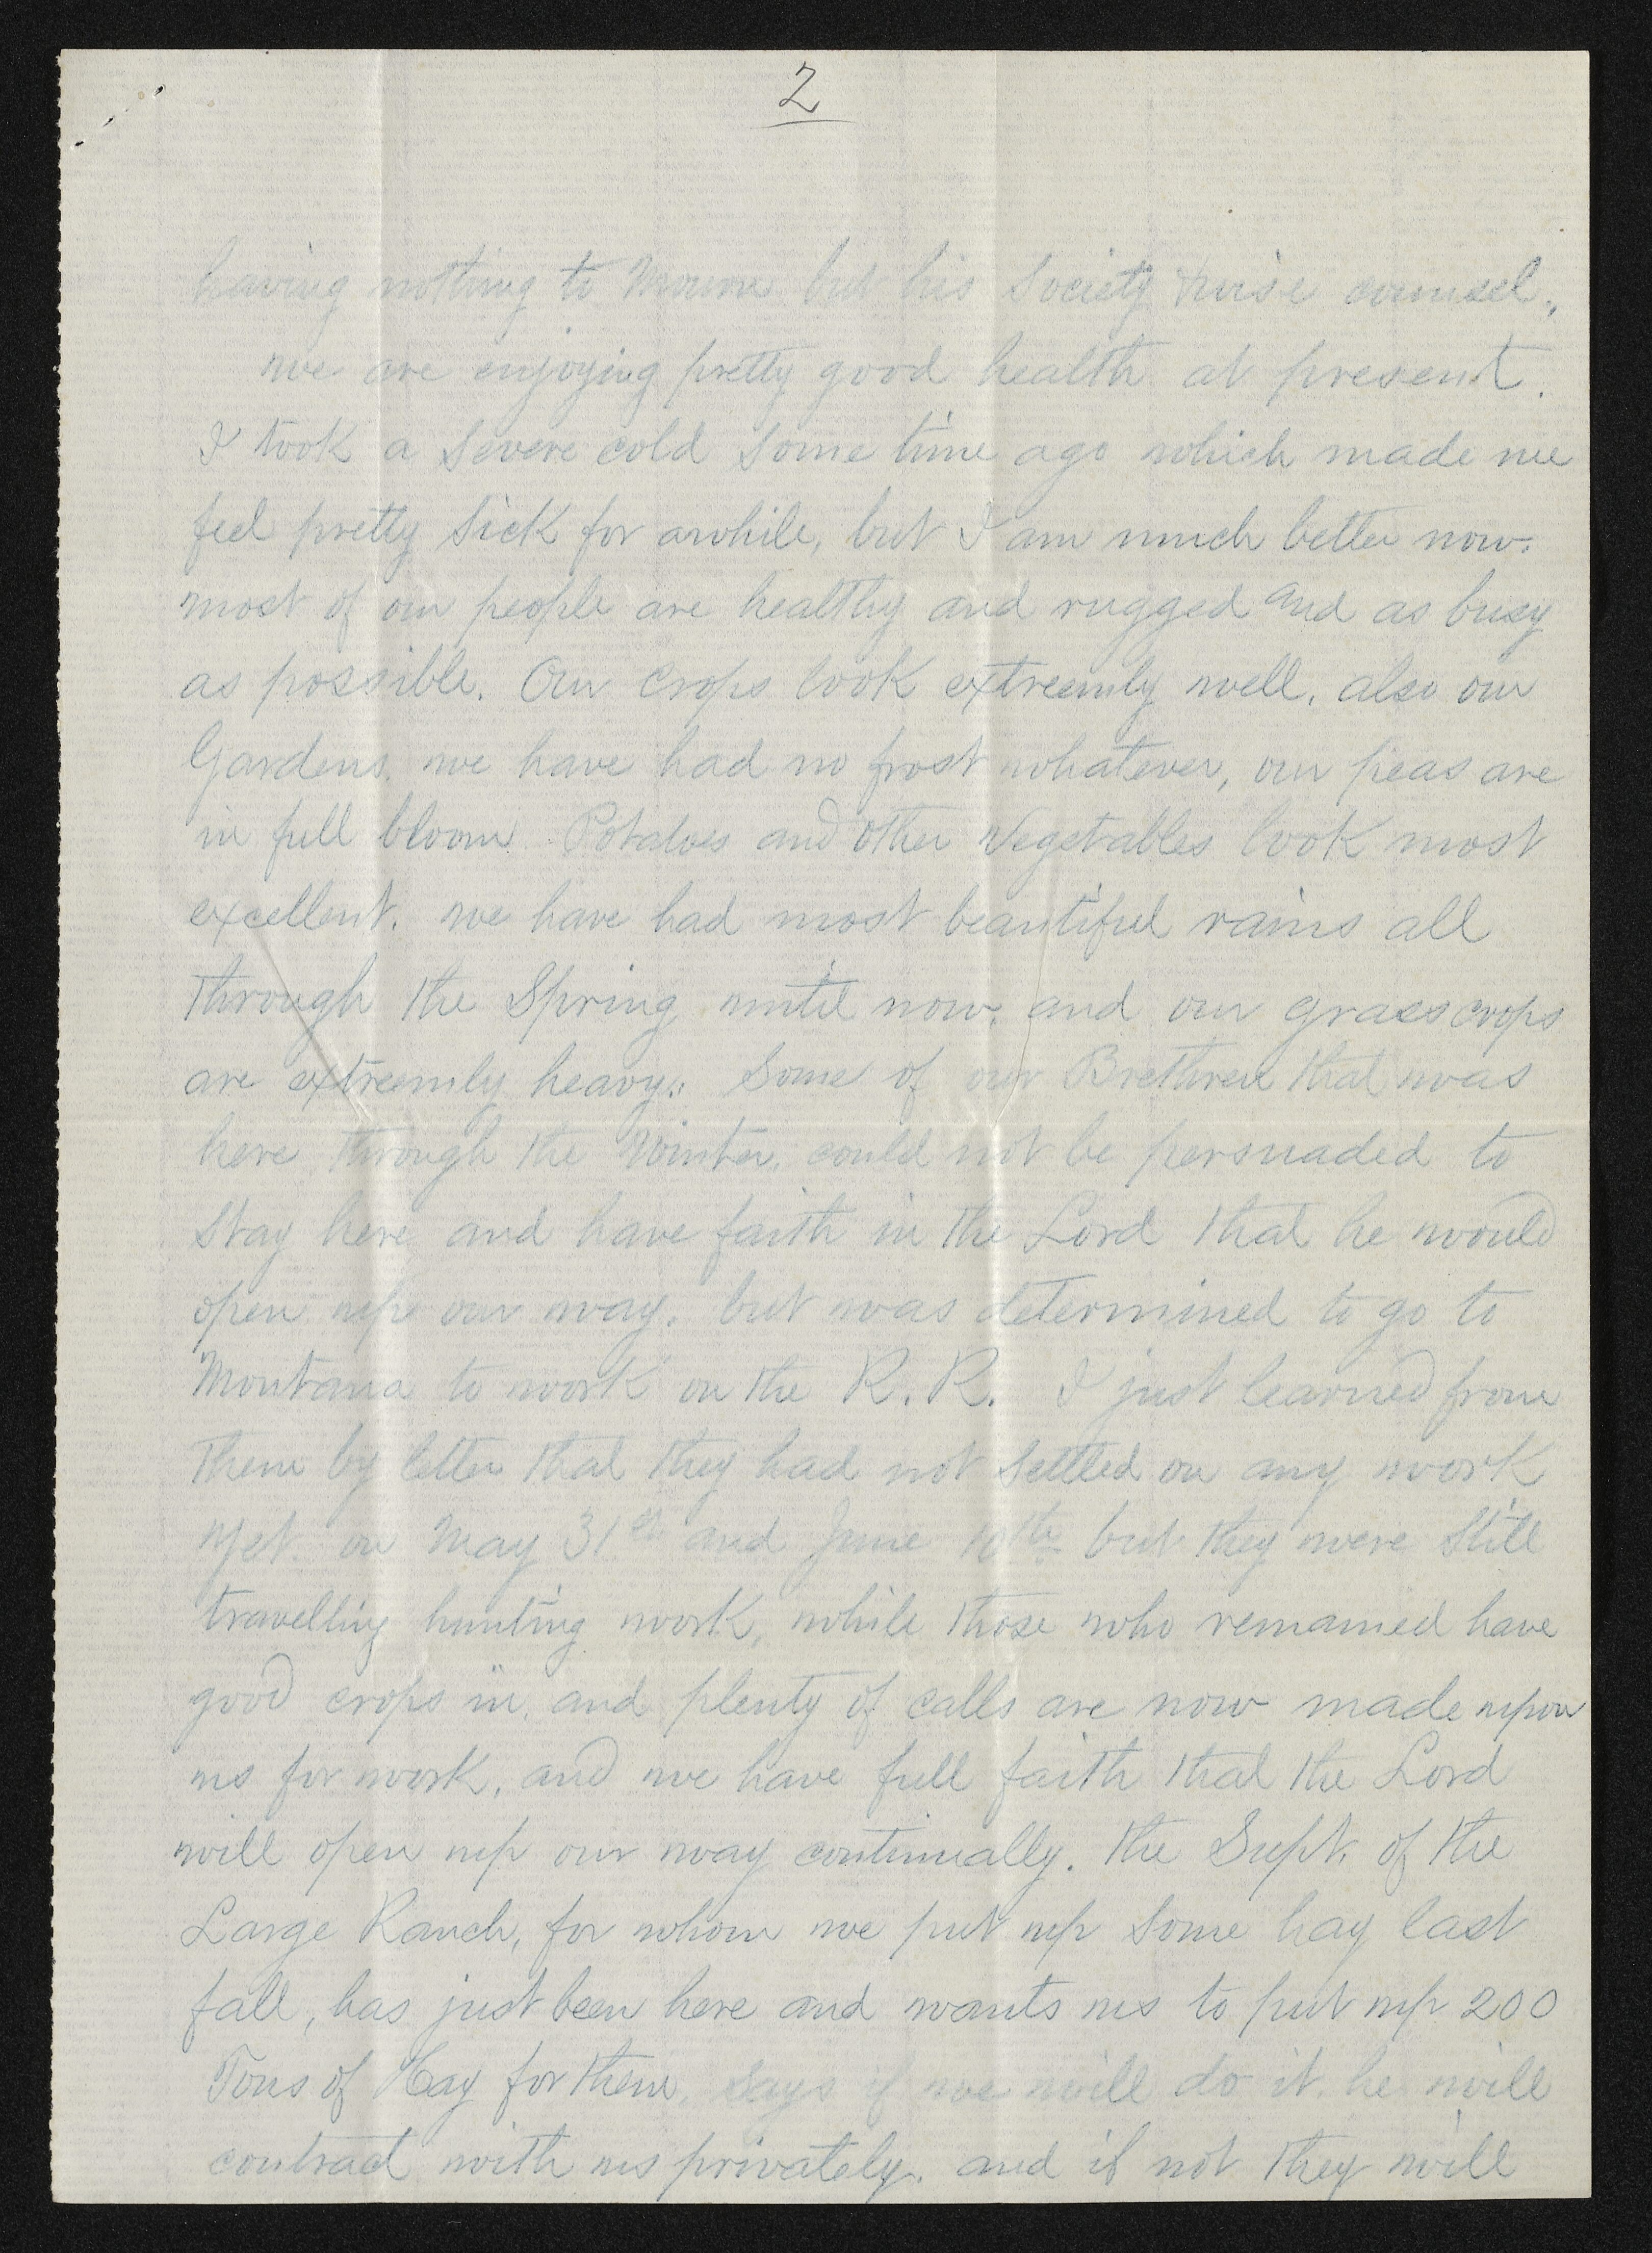 2
having nothing to Mourn but his Society & wise counsel.,
we are enjoying pretty good health at present.
I took a Severe cold Some time ago which made me
feel pretty Sick for awhile, but I am much better now.
most of our people are healthy and rugged and as busy
as possible. Our Crops look extreemly well, also our
Gardens, we have had no frost whatever, our peas are
in full bloom. Potatoes and other Vegetables look most
excellent. we have had most beautiful rains all
through the Spring until now, and our grass crops
are extreemly heavy.. Some of our Brethren that was
here through the Winter, could not be persuaded to
Stay here and have faith in the Lord that he would
open up our way, but was determined to go to
Montana to work on the R.R. I just learned from
them by letter that they had not Settled on any work
yet on May 31st and June 10th but they were Still
travelling hunting work, while those who remained have
good crops in, and plenty of calls are now made upon
us for work, and we have full faith that the Lord
will open up our way continually. the Supt. of the
Large Ranch, for whom we put up Some hay last
fall, has just been here and wants us to put up 200
Tons of Hay for them, Says if we will do it he will
contract with us privately. and if not they will